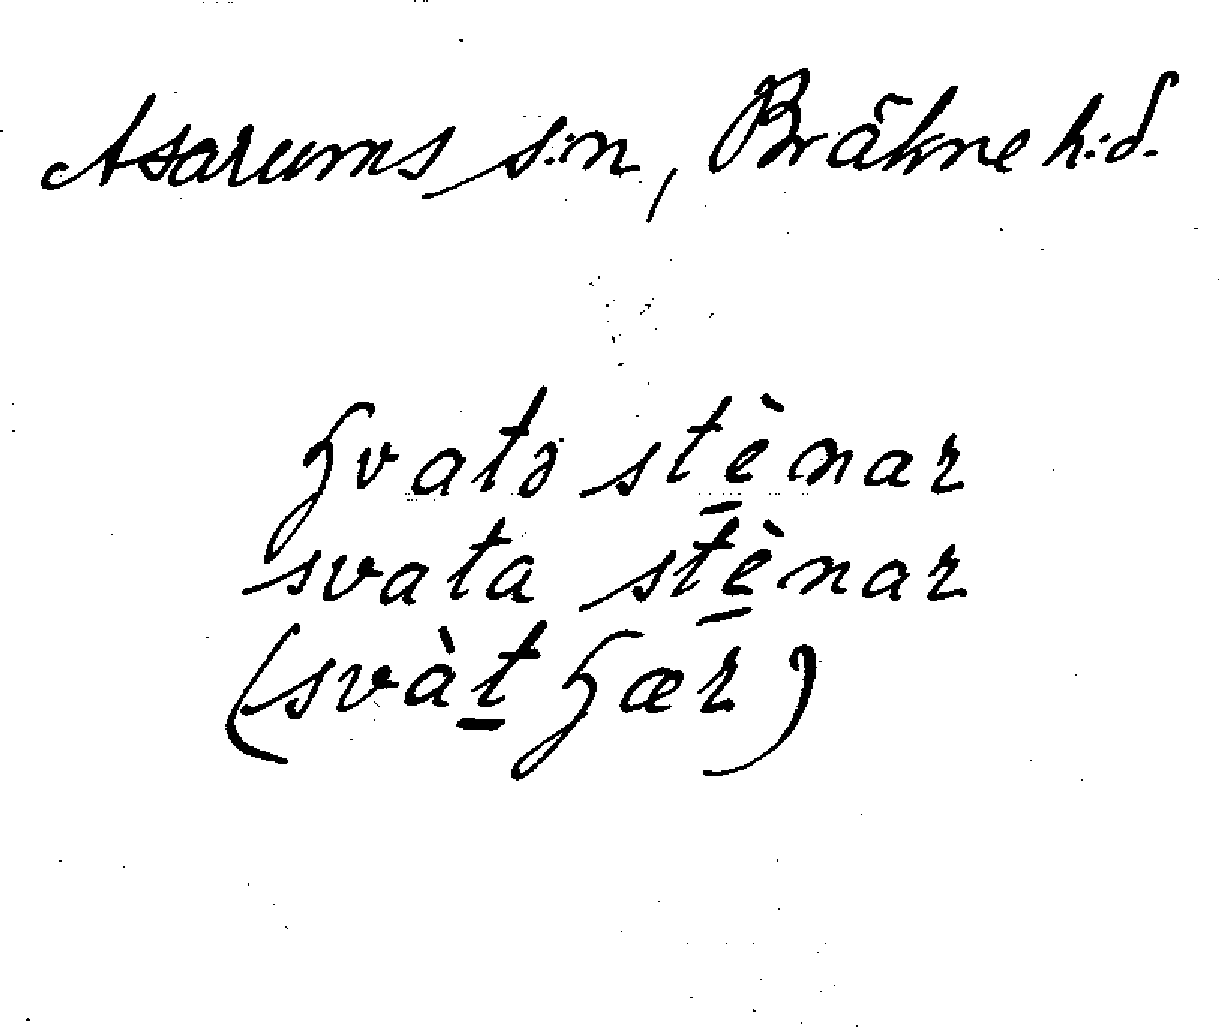 Asarums s:n, Bräkne h:d.
ɧvatə stè̱nar
svata stè̱nar
(svàṯ ɧær)